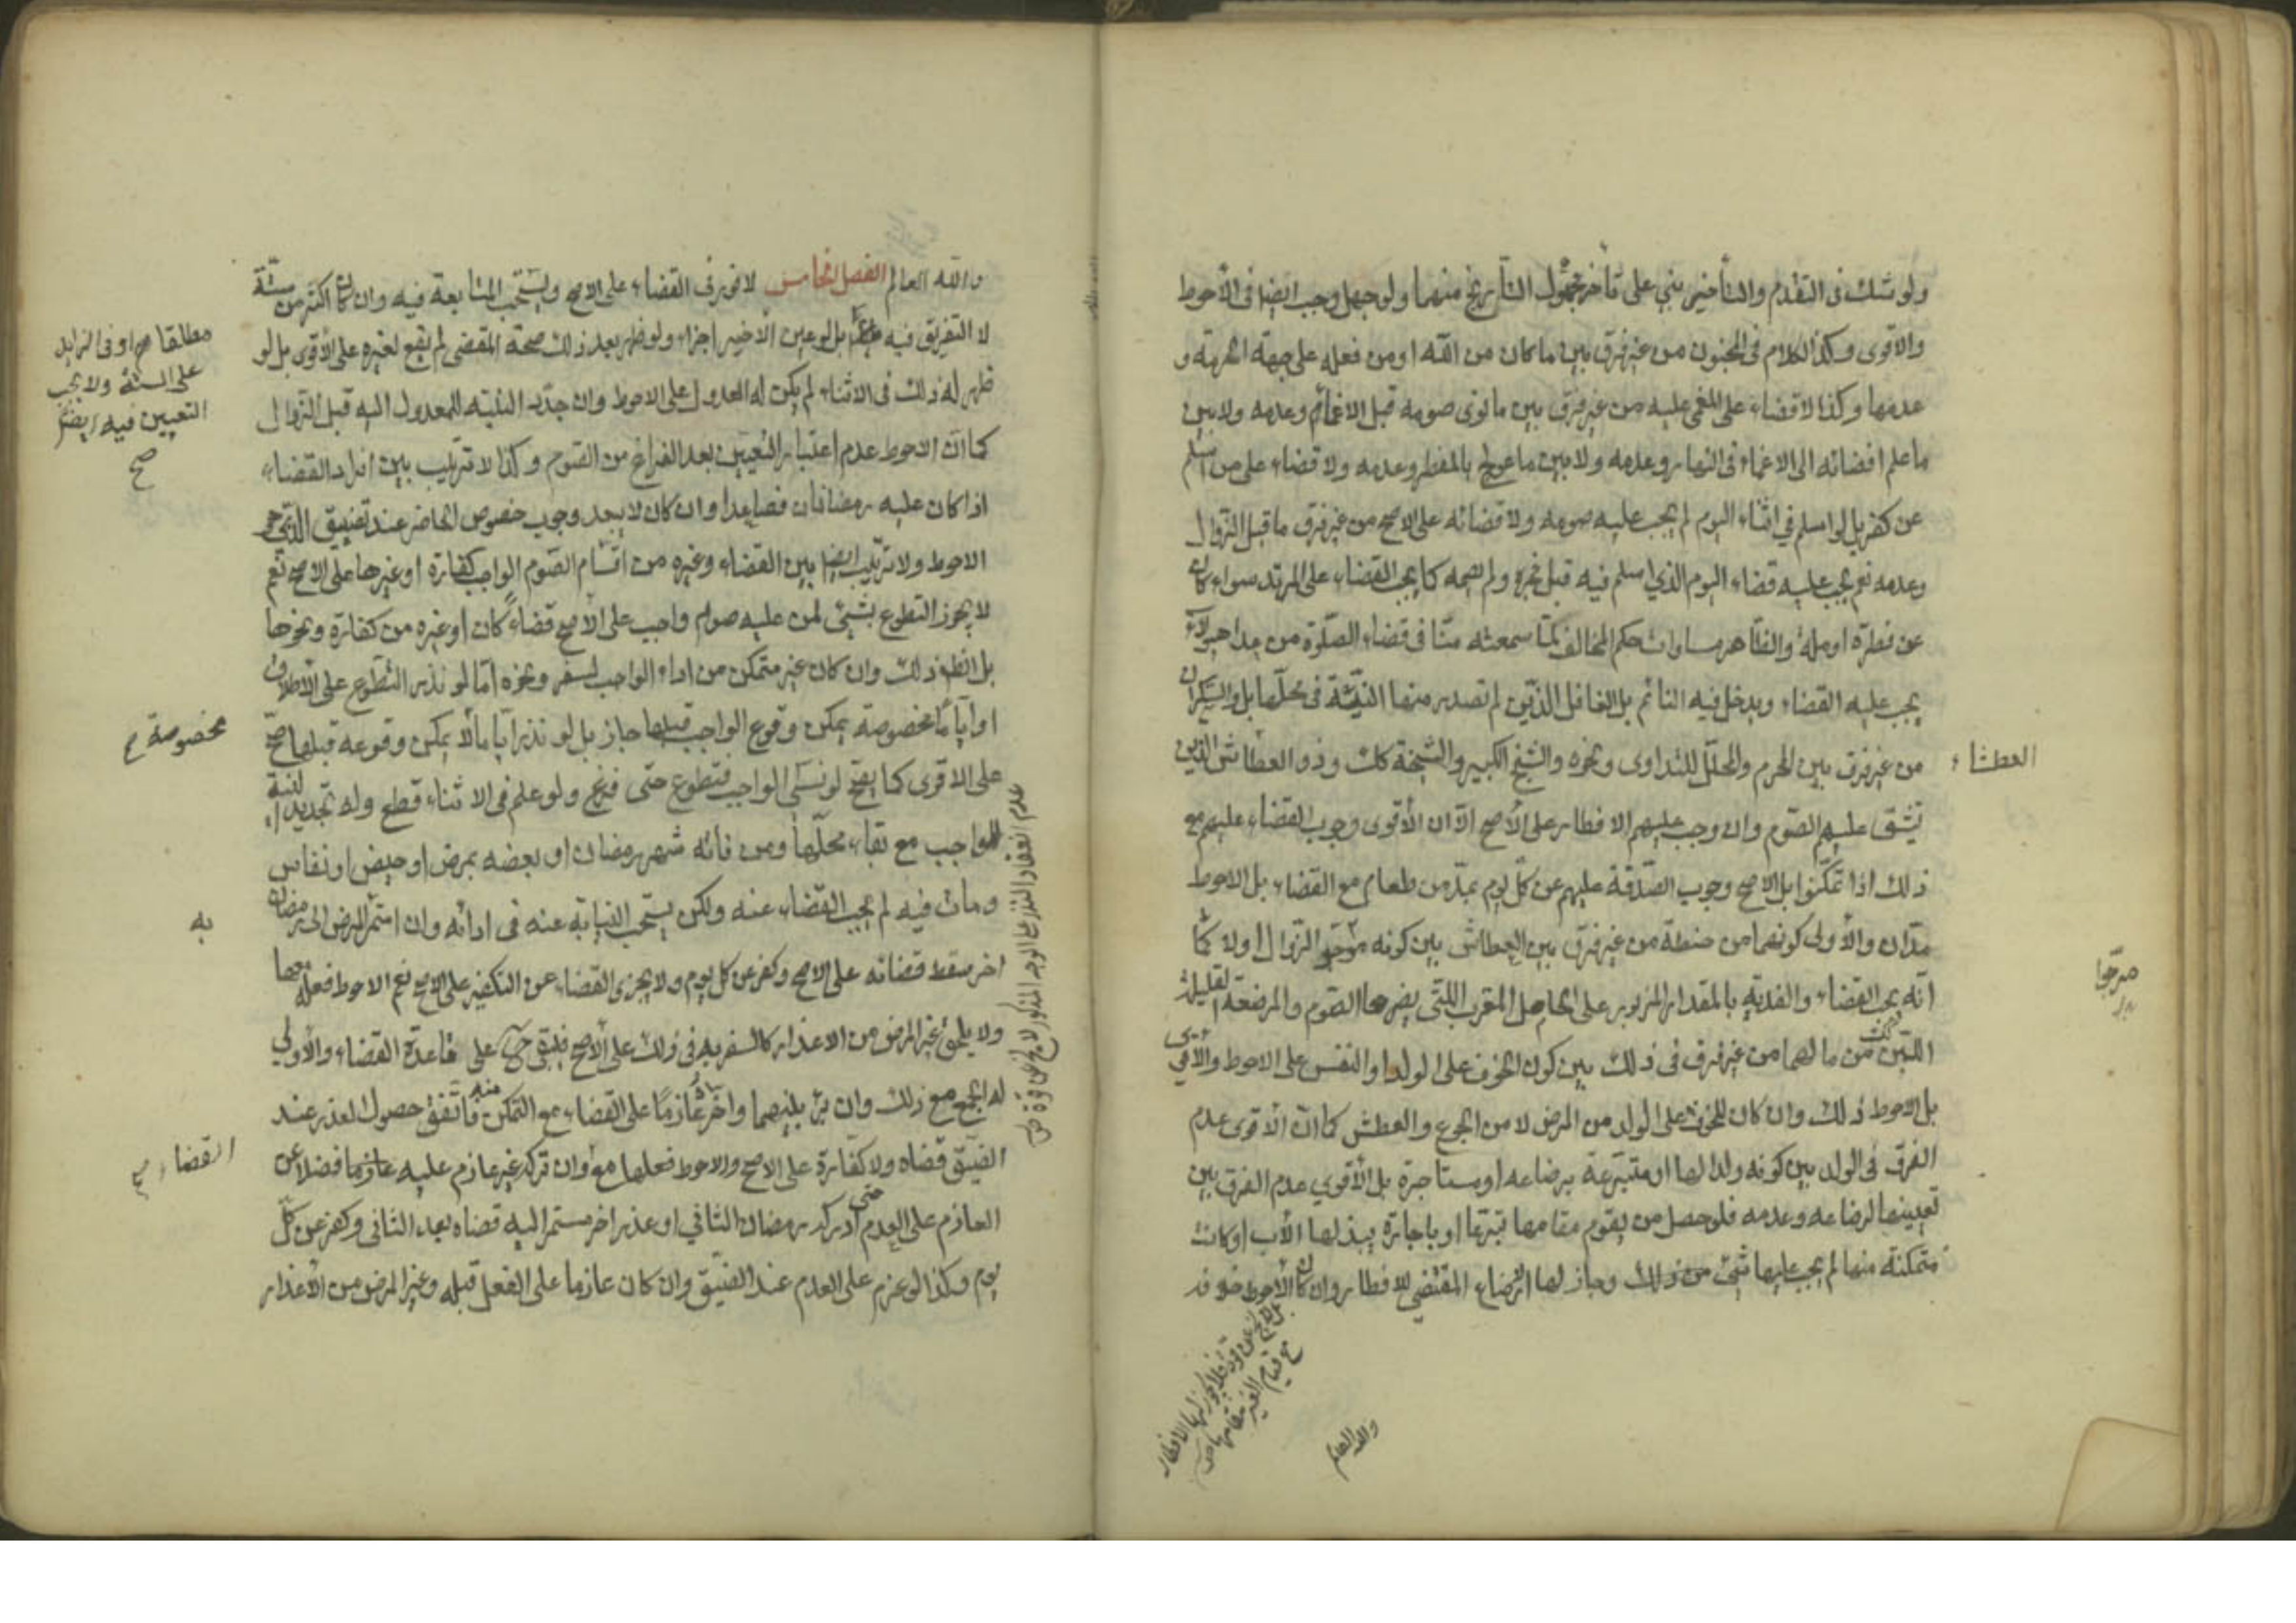 ولو شك فى التقدم والتأخير بني على تأخر مجهول التأريخ منهما ولو جهل وجب ايضا فى الأحوط
والاقوى وكذا الكلام فى المجنون من غير فرق بين ما كان من الله او من فعله على جهة الحرمة و
عدمها وكذا لا قضاء على المغمى عليه من غير فرق بين ما نوى صومه قبل الاغماء وعدمه ولا بين
ما علم افضائه الى الاغماء فى النهار وعدمه ولا بين ما عولج بالمفطر وعدمه ولا قضاء على من اسلم
عن كفر بل لو اسلم في اثناء اليوم لم يجب عليه صومه ولا قضائه على الاصح من غير فرق ما قبل الزوال
وعدمه نعم يجب عليه قضاء اليوم الذي اسلم فيه قبل فجره ولم يصمه كما يجب القضاء على المرتد سواء كان
عن فطرة او ملة والظاهر مساوات حكم المخالف لما سمعته منا فى قضاء الصلوة من
يجب عليه القضاء ويدخل فيه النائم بل الغافل الذين لم تصدر منهما النية فى محلها بل والسكران
من غير فرق بين المحرم والمحلل للتداوى ونحوه والشيخ الكبير والشيخة كك وذو العطاش الذين
العطشاء
يشق عليهم الصوم وان وجب عليهم الافطار على الأصح الا ان الأقوى وجوب القضاء عليهم مع
ذلك اذا تمكنوا بل الاصح وجوب الصدقة عليهم عن كل يوم بمد من طعام مع القضاء بل الاحوط
مدان والأولى كونهما من حنطة من غير فرق بين العطاش بين كونه مرجو الزوال اولا كما
مرجوا
انه يجب القضاء والفدية بالمقدار المزبور على الحامل المقرب اللتى يضر بها الصوم والمرضعة القليلة
اللبن من مالهما من غير فرق فى ذلك بين كون الخوف على الولد او النفس على الاحوط والأقوى
بل الاحوط ذلك وان كان للخوف على الولد من المرض لا من الجوع والعطش كما ان الأقوى عدم
الفرق فى الولد بين كونه ولدا لها او متبرعة برضاعه او مستاجرة بل الأقوي عدم الفرق بين
تعيينها لرضاعه وعدمه فلو حصل من يقوم مقامها تبرعا او باجارة يبذلها الأب او كانت
متمكنة منها لم يجب عليها شئ من ذلك وجاز لها الرضاع المقتضي للافطار وان كان الأحوط خلافه
مع قيام الغير مقامها
والله العالم
والله العالم الفصل الخامس لا فور في القضاء على الاصح ويستحب المتابعة فيه وان كان اكثر من ستة
لا التفريق فيه بل لو عين الأخير اجزء ولو ظهر بعد ذلك صحة المقضى لم يقع لغيره على الأقوى بل لو
مطلقا او فى الزايد
على الستة ولا يجب
التعيين فيه ايضا
صح
ظهر له ذلك فى الاثناء لم يكن له العدول على الاحوط وان جدد النية للمعدول اليه قبل الزوال
كما ان الاحوط عدم اعتبار التعيين بعد الفراغ من الصوم وكذا لا ترتيب بين افراد القضاء
اذا كان عليه رمضانان فصاعدا وان كان لا يبعد وجوب خصوص الحاضر عند تضييق
الاحوط ولا ترتيب ايضا بين القضاء وغيره من اقسام الصوم الواجب كفارة او غيرها على الاصح نعم
لا يجوز التطوع بشئ لمن عليه صوم واجب على الأصح قضاء كان او غيره من كفارة ونحوها
بل الظ ذلك وان كان غير متمكن من اداء الواجب لسفر ونحوه اما لو نذر التطوع على الأطلاق
او أياما مخصوصة يمكن وقوع الواجب قبلها جاز بل لو نذر أياما لا يمكن وقوعه قبلها صح
مخصوصة
على الاقوى كما يصح لو نسي الواجب فتطوع حتى فرغ ولو علم فى الاثناء قطع وله تجديد النية
للواجب مع بقاء محلها ومن فاته شهر رمضان او بعضه بمرض او حيض او نفاس
ومات فيه لم يجب القضاء عنه ولكن يستحب النيابة عنه فى ادائه وان استمر المرض الى رمضان
به
اخر سقط قضائه على الاصح وكفر عن كل يوم ولا يجزى القضاء عن التكفير على الاصح نعم الاحوط فعله معها
ولا يلحق غير المرض من الاعذار كالسفر به فى ذلك على الأصح فتبقى على قاعدة القضاء والأولى
له الجمع مع ذلك وان برء بينهما واخر عازما على القضاء مع التمكن منه فاتفق حصول العذر عند
الضيق قضاه ولا كفارة على الاصح والاحوط فعلها مع وان تركه غير عازم عليه عازما فضلا عن
القضاء
العازم على العدم حتى ادركه رمضان الثانى او عذر اخر مستمر اليه قضاه بعد الثانى وكفر عن كل
يوم وكذا لو عزم على العدم عند الضيق وان كان عازما على الفعل قبله وغير المرض من الأعذار
عدم انعقاد النذر على الوجه المذكور لا يخ عن قوة